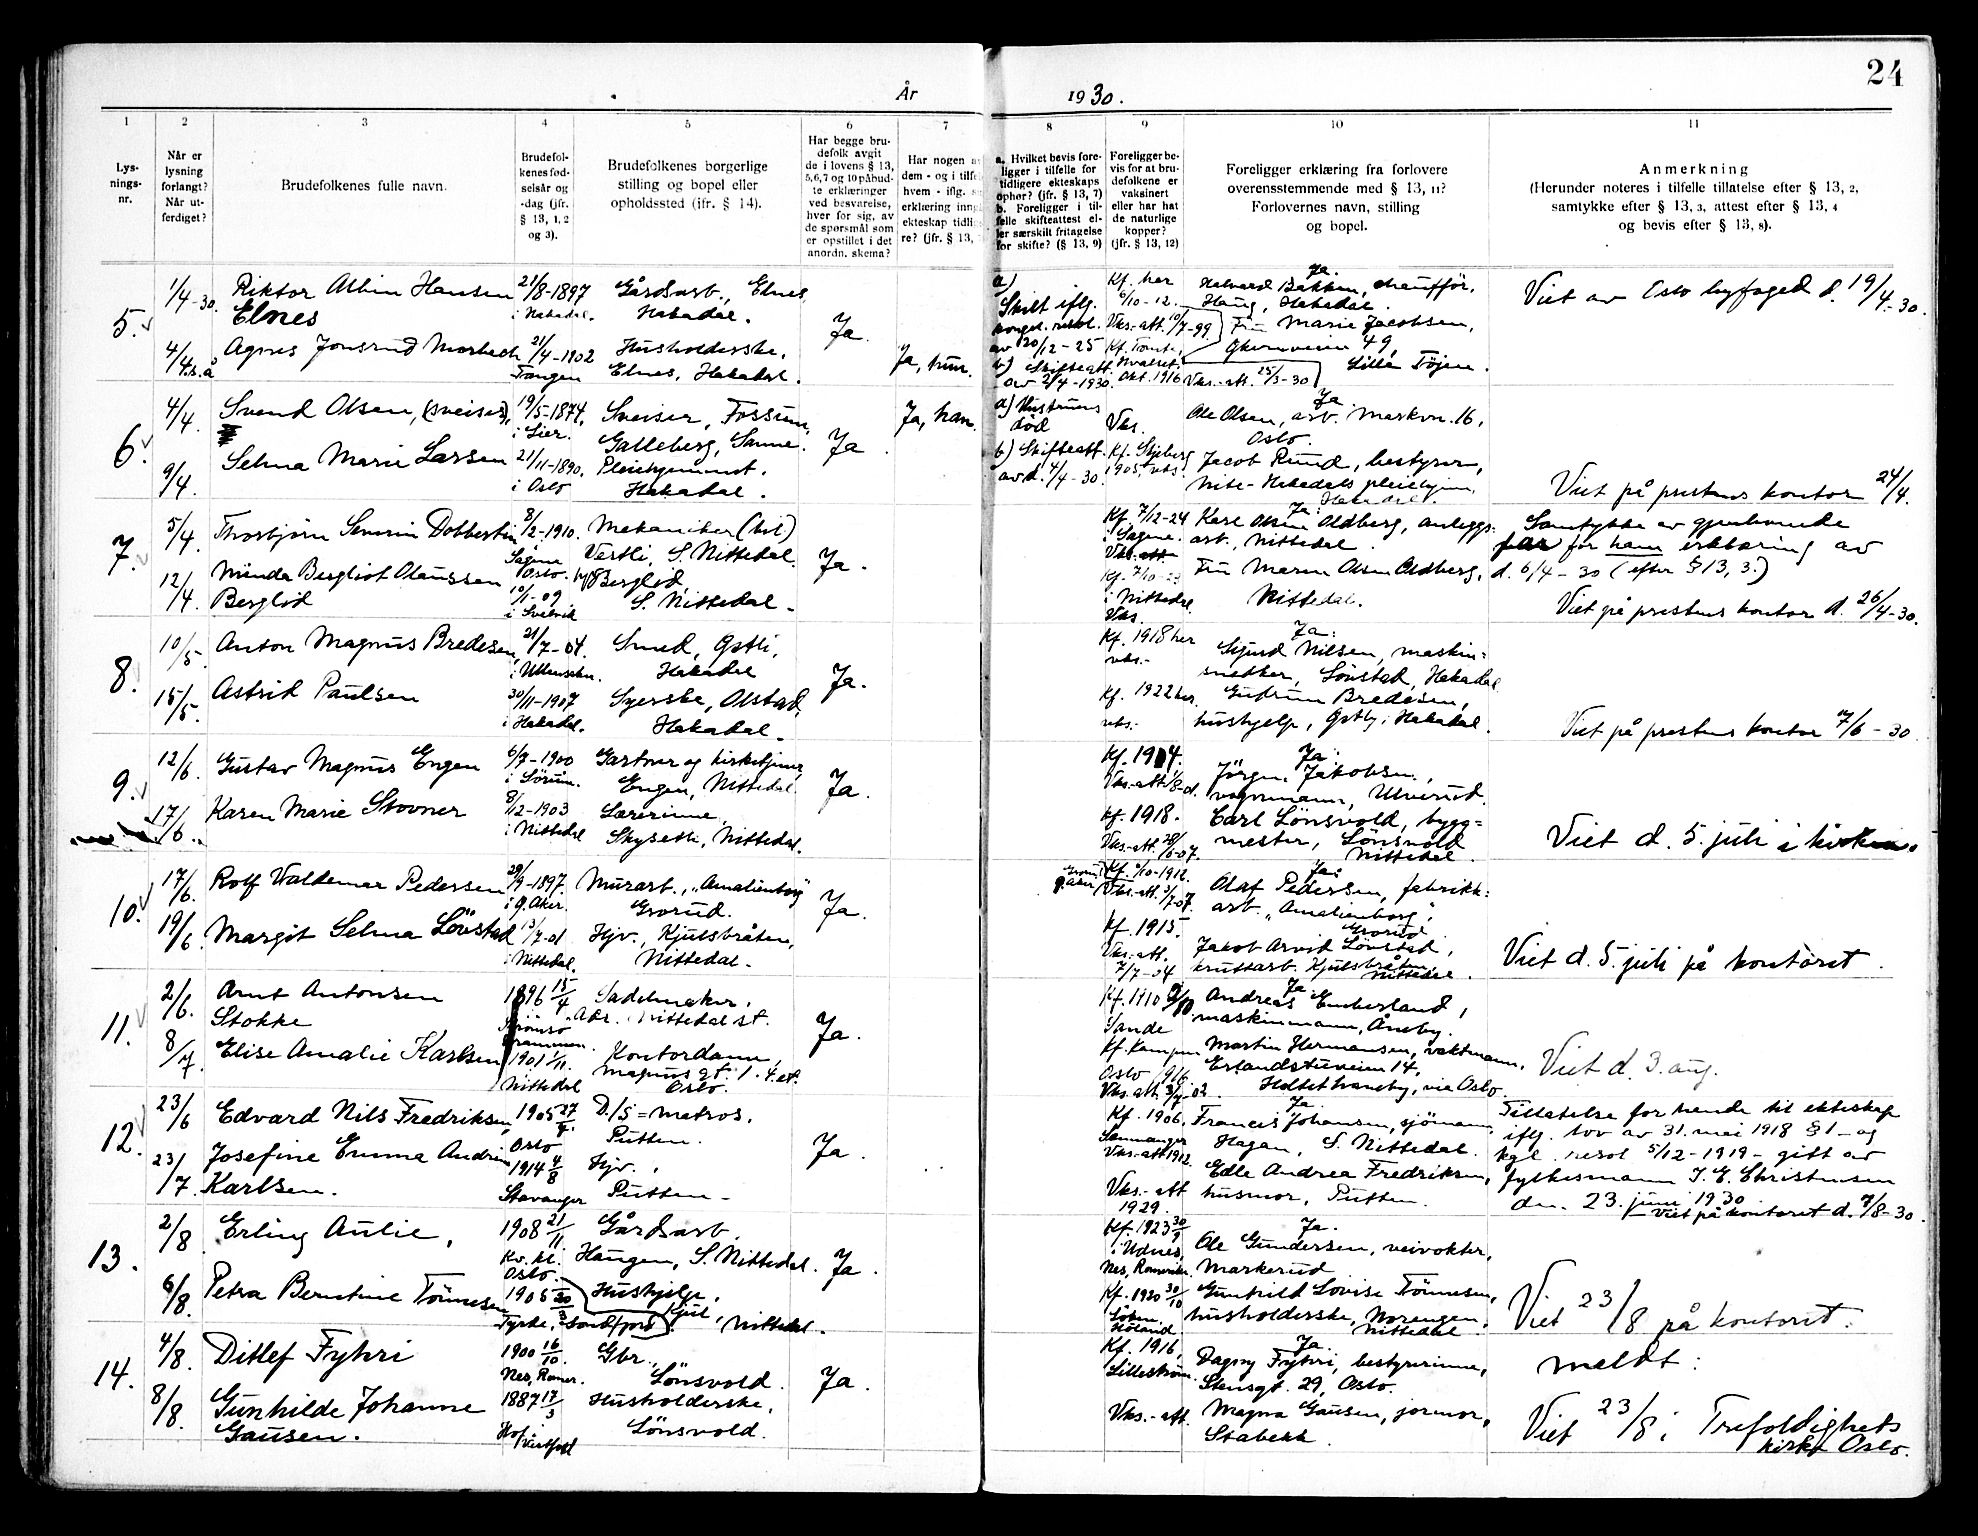 24
År 1930.
1 2 3 4 5 6 7 8 9 10 11
Lys-
nings-
nr.
Når er
lysning
forlangt?
Når ut-
ferdiget?
Brudefolkenes fulle navn.
Brudefol-
kenes fød-
selsår og
-dag (jfr.
§ 13, 1, 2
og 3).
Brudefolkenes borgerlige
stilling og bopel eller
opholdssted (ifr. § 14).
Har begge bru-
defolk avgit
de i lovens § 13,
5,6,7 og 10 påbud-
te erklæringer
ved besvarelse,
hver for sig, av
de spørsmål som
er opstillet i det
anordn. skema?
Har nogen a
dem - og i tilf
hvem - iflg.
erklæring inn
ekteskap tidli
re? (jfr. § 13,
a. Hvilket bevis fore-
ligger i tilfelle for
tidligere ekteskaps
ophør? (jfr. § 13, 7)
b. Foreligger i til-
felle skifteattest el-
ler særskilt fritagelse
for skifte? (§ 13, 9)
Foreligger be-
vis for at bru-
defolkene er
vaksinert
eller har hat
de naturlige
kopper?
(jfr. § 13, 12)
Foreligger erklæring fra forlovere
overensstemmende med § 13, 11?
Forlovernes navn, stilling
og bopel.
Anmerkning
(Herunder noteres i tilfelle tillatelse efter § 13, 2,
samtykke efter § 13, 3, attest efter § 13, 4
og bevis efter § 13, 8).
5.
1/4-30
Riktor Albin Hansen
Elnes
21/8-1897
i Hakadal.
Gårdsarb., Elnes,
Hakadal.
4/4. s.å
Agnes Jonsrud Morbech
21/4-1902
Tangen
Husholderske,
Elnes, Hakadal.
Ja.
Ja, hun.
a)
Skilt iflg.
kongel. resol.
av 20/12-25
b) Skifteatt.
av 2/4-1930.
Kf. her
6/10-12.
Vks.-att. 10/7-99
Kf. Tomte,
Kvalset.
Okt. 1916 Vks.-att. 25/3-30
Ja.
Halvard Bakken, chaufför,
Haug, Hakadal.
Fru Marie Jacobsen,
Økernveien 49,
Lille Tøjen.
Viet av Oslo byfoged d. 19/4-30.
6.
4/4.
Svend Olsen, (sveiser),
19/5-1874,
i Lier.
Sveiser, Fossum,
Galleberg, Sanne.
9/4.
Selma Marie Larsen
21/11-1890.
i Oslo
Pleiehjemmet.
Hakadal.
Ja
Ja, han
a) Hustruens
död
b) Skifteatt.
av d. 4/4-30.
Vks.
Kf. Skjeberg
1905, vks.
Ja
Ole Olsen, arb. Markvn. 16,
Oslo.
Jacob Rund, bestyrer,
Nite-Hakadals pleiehjem,
Hakadal.
Viet på prestens kontor 24/4.
7.
5/4.
Thorbjørn Severin Dobbertin
8/2-1910.
Sagene
Oslo.
Mekaniker (bil)
Vestli, S. Nittedal.
12/4.
Minda Bergliot Olaussen
Berglöd
10/1-09
i Svelvik
Berglöd
S. Nittedal.
Ja.
Kf. 7/12-24
i Sagene.
Vks.att.
Kf. 7/10-23
i Nittedal
Vks.
Ja:
Karl Olsen Oldberg, anleggs-
arb., Nittedal.
Fru Maren Olsen Oldberg,
Nittedal.
Samtykke av gjenlevende
far for ham erklæring av
d. 6/4-30 (efter § 13, 3.)
Viet på prestens kontor d. 26/4-30.
8.
10/5.
Anton Magnus Bredesen
21/7-04.
i Ullensaker.
Smed, Gstli,
Hakadal
15/5.
Astrid Paulsen
30/11-1907
i Hakadal.
Syerske, Olstad,
Hakadal.
Ja.
Kf. 1918 her
vks.-
Kf. 1922 her,
vks.-
Ja:
Sigurd Nilsen, maskin-
snedker, Lönstad, Hakadal
Gudrun Bredesen,
hushjelp, Gstby, Hakadal.
Viet på prestens kontor 7/6-30
9.
12/6.
Gustav Magnus Engen
6/7-1900
i Sörum.
Gartner og kirketjener,
Engen, Nittedal.
17/6.
Karen Marie Stovner
8/12-1903
i Nittedal
Lærerinne,
Skysetli, Nittedal.
Ja.
Kf. 1914.
Vks.-att.
Kf. 1918.
Vks.-att. 28/6-07.
Ja:
Jörgen Jakobsen,
vognmann, Ulverud.
Carl Lönsvold, bygg-
mester, Lönsvold
Nittedal.
Viet d. 5. juli i kirken.
10.
17/6.
Rolf Valdemar Pedersen
29/9-1897.
i Ø. Aker.
Murarb., "Amalienborg"
Grorud.
19/6.
Margit Selma Lövstad
13/7-01
i Nittedal.
Hjv., Kjulsbråten,
Nittedal.
Ja.
Kf. 1/10-1912.
Vks.-att. 3/7-07.
Kf. 1915.
Vks.-att.
7/7-04
Ja:
Olaf Pedersen, fabrikk-
arb. "Amalienborg",
Grorud.
Jakob Arvid Lövstad,
kruttarb. Kjulsbråten
Nittedal.
Viet d. 5. juli på kontoret.
11.
2/6.
Arnt Antonsen
Stokke
1896 15/4
Strömsö
Drammen.
Sadelmaker,
Adr. Nittedal st.
8/7.
Elise Amalie Karlsen
1901 1/11.
Nittedal
Kontordame,
Magnus gt. 1. 4. et.
Oslo.
Ja.
Kf. 1910
Sande
Kf. Kampen
Oslo 1916
Vks. att. 3/4-02.
Ja:
Andreas Emberland,
maskinmann, Åneby.
Martin Hermansen, vaktmann,
Erlandstuveien 14,
Holtet traneby, via Oslo.
Viet d. 3. aug.
12.
23/6
Edvard Nils Fredriksen,
1905 27/4.
Oslo
D/S-matros.
Putten.
23/7.
Josefine Emma Andrine
Karlsen.
1914 4/8
Stavanger
Hjv.,
Putten
Ja.
Kf. 1906.
Samnanger
Vks.-att 1912.
Vks.-att
1929.
Ja
Francis Johansen, sjömann,
Hagan, S. Nittedal.
Edle Andrea Fredriksen,
husmor, Putten.
Tillatelse for hende til ekteskap
iflg. lov av 31. mei 1918 § 1 - og
kgl. resol 5/12-1919 - gitt av
fylkesmann I. E. Christensen
den 23. juni 1930
Viet på kontoret d. 7/8-30.
13.
2/8
Erling Aulie,
1908 21/11
Kv. kl.
Oslo.
Gårdsarb.
Haugen, S. Nittedal.
6/8.
Petra Berntine Tönnesen
1905 20/3
Tyrke, Sandfjord
Hushjelp,
Kjul, Nittedal.
Ja.
Kf. 1923 30/9
i Udnes,
Nes, Romerike.
Kf. 1920 30/10
Löken
Höland
Ja.
Ole Gundersen, veivokter,
Markerud
Gunhild Lovise Tönnesen,
husholderske, Norengen,
Nittedal.
Viet 23/8 på kontoret.
14.
4/8.
Ditlef Fyhri
1900 16/10.
Nes, Romer.
Gbr.,
Lönsvold.
8/8.
Gunhilde Johanne
Gausen.
1887 17/3
Hof i
Vestfold
Husholderske,
Lönsvold.
Ja.
Kf. 1916,
Lilleström.
Vks.-att.
Ja
Dagny Fyhri, bestyrerinne,
Stensgt. 29, Oslo.
Magna Gausen, jormor,
Stabekk
meldt:
Viet 23/8 i Trefoldighets
kirke Oslo.